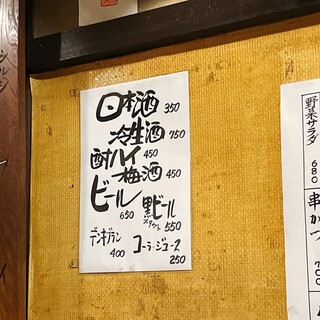 日本酒 350
冷生酒 750
酎ハイ 450
梅酒 450
ビール 650
黒ビール
スタウト 550
デンキブラン 400
コーラ・ジュース 250
野菜サラダ 680
串かつ 700